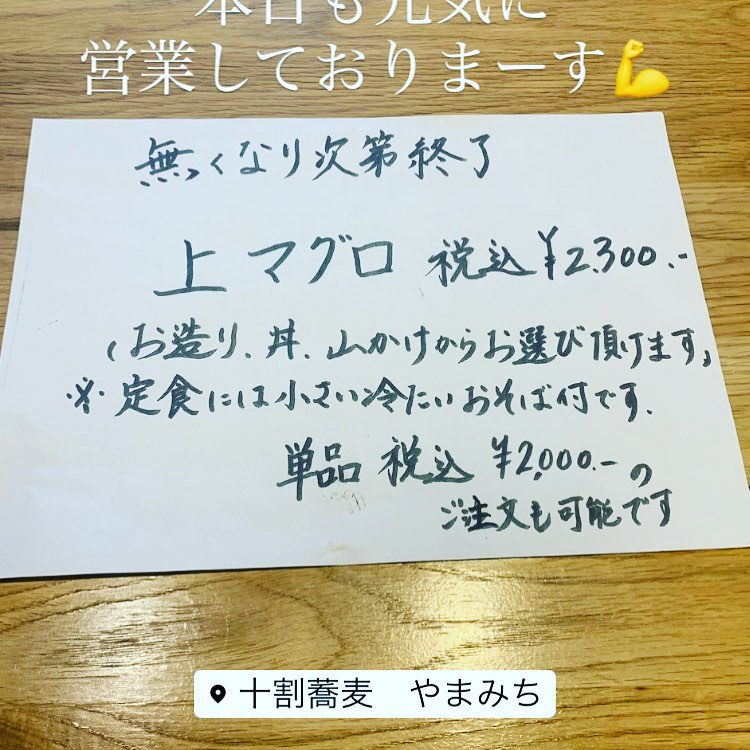 本日も元気に
営業しておりまーす💪
無くなり次第終了
上マグロ 税込¥2,300.-
(お造り、丼、山かけからお選び頂けます)
※定食には小さい冷たいおそば付です.
単品 税込 ¥2,000.-の
ご注文も可能です
十割蕎麦 やまみち